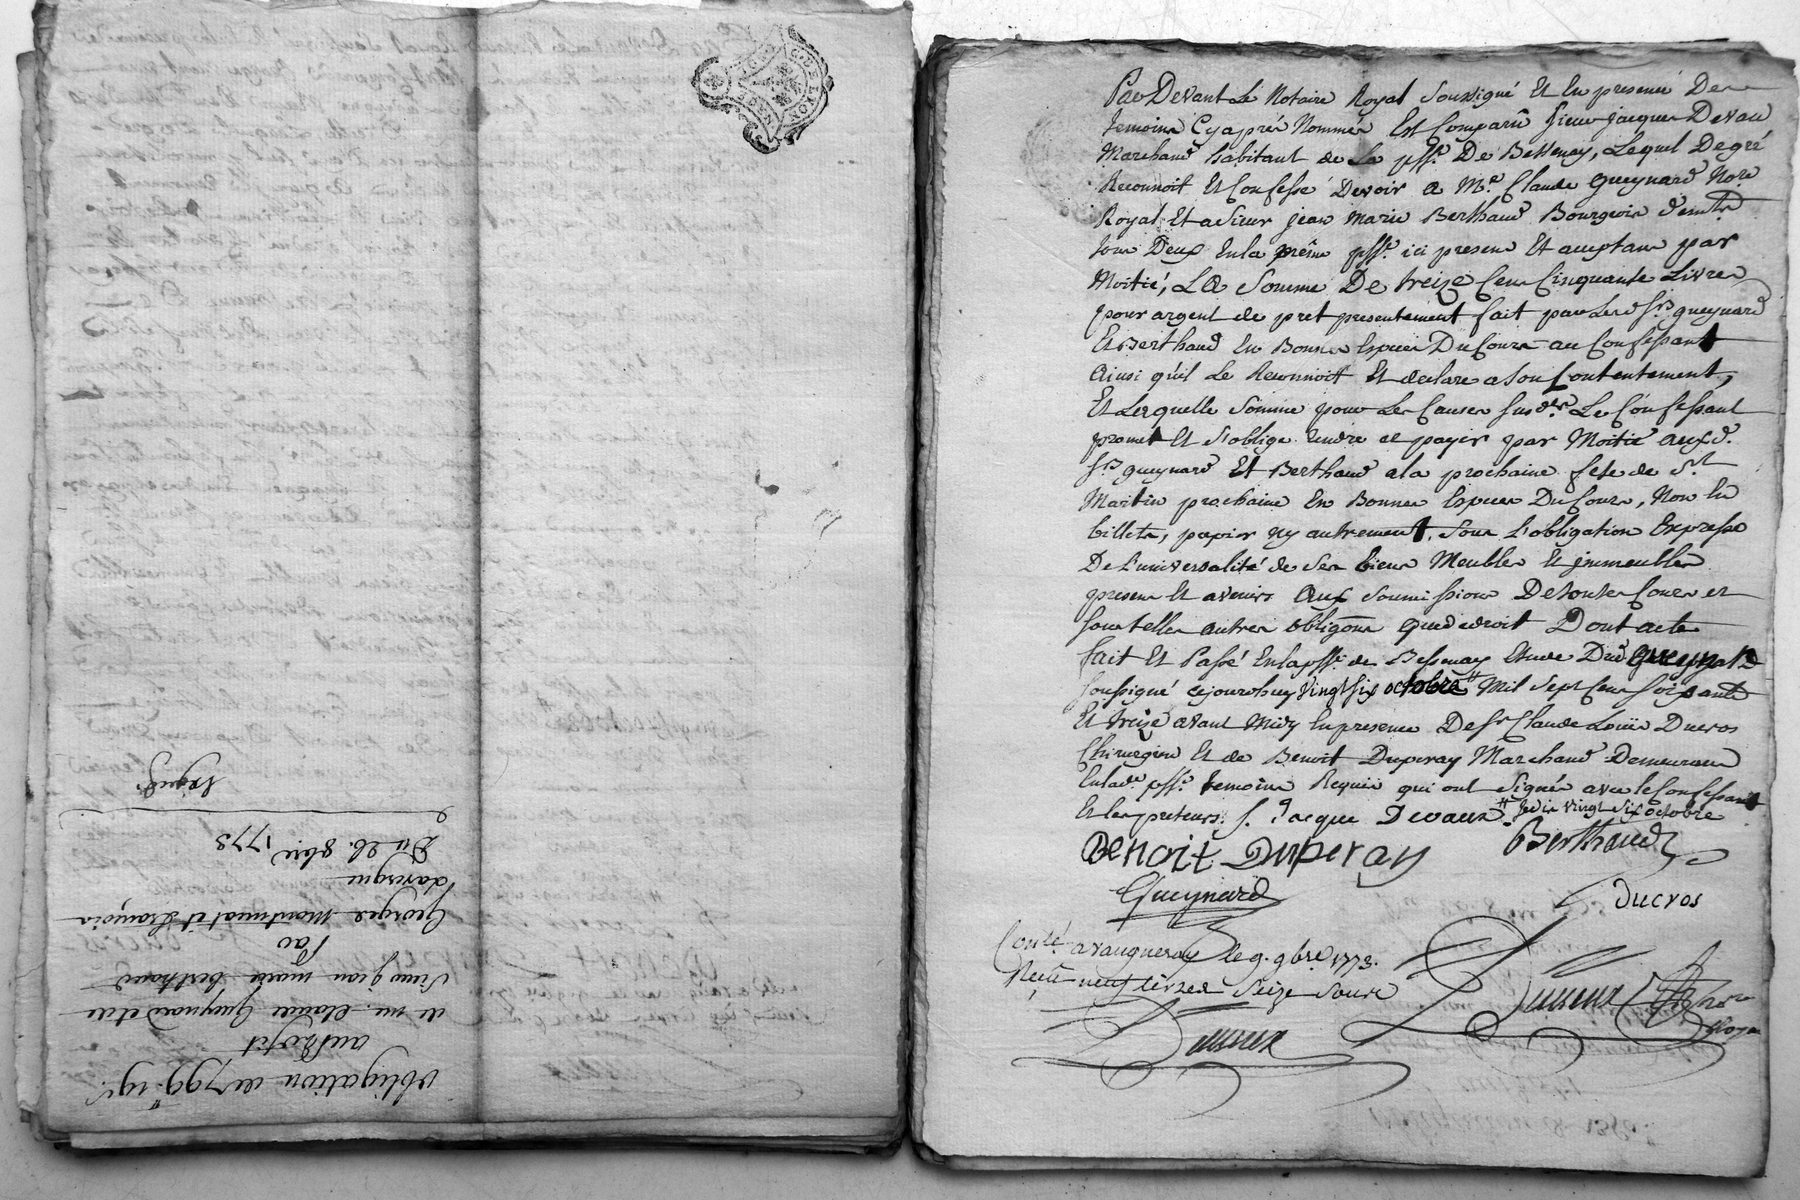 obligation de 799.# 19s.
au proffit
de me. Claude Gueynard et de
Sieur jean marie berthaud
Par
Georges Montmat et françois
Laversque
Du 26. 8bre 1773
Par Devant Le Notaire Royal Soussigné Et En presence Des
temoins Cy apres Nommés Est Comparû Sieur jacques Devau
Marchand habitant de La psse. De Bessenay, Lequel De gré
Reconnoit Et Confessé Devoir a Me. Claude Gueynard Nore
Royal Et a Sieur jean Marie Berthaud Bourgeois
tous Deux En la même psse. ici presens Et aceptans par
Moitié, LA Somme De treize Cens Cinquante Livres
pour argent de pret presentement fait par Lesd. Srs. gueynard
Et Berthaud En Bonnes Especes Du Cours au Confessant
Ainsi qu'il Le Reconnoit Et declare a Son Contentement,
Et Lesquelle Somme pour Les Causes Susdes. Le Confessant
promet Et S'oblige rendre et payer par Moitié auxd.
Srs gueynard Et Berthaud a la prochaine fete de St
Martin prochaine En Bonnes Especes Du Cours, Non En
billets, papier ny autrement, Sous L'obligation Expresse
De L'universalité de Ses biens Meubles Et jmmeubles
presens Et avenirs aux Soumissions De toutes Cours et
Sous telles autres obligõns que de droit Dont acte
fait Et Passé En la psse. de Bessenay Etude Dud. Gueynard
Soussigné cejourdhuy vingt six octobre # Mil Sept Cens Soixante
Et treize avant Midy En presence De Sr Claude Loüis Ducros
Chirurgien Et de Benoit Duperay Marchand Demeurans
En lade. psse. temoins Requis qui ont Signés avec le Confessant
Et les preteurs. /. Jacque Devaux # Je dis vingt Six octobre
BENOIT DUPERAY Berthaud
Gueynard Ducros
Conlé. a vaugneray le 9. 9bre 1773.
Reçû neuf livres Seize Sous